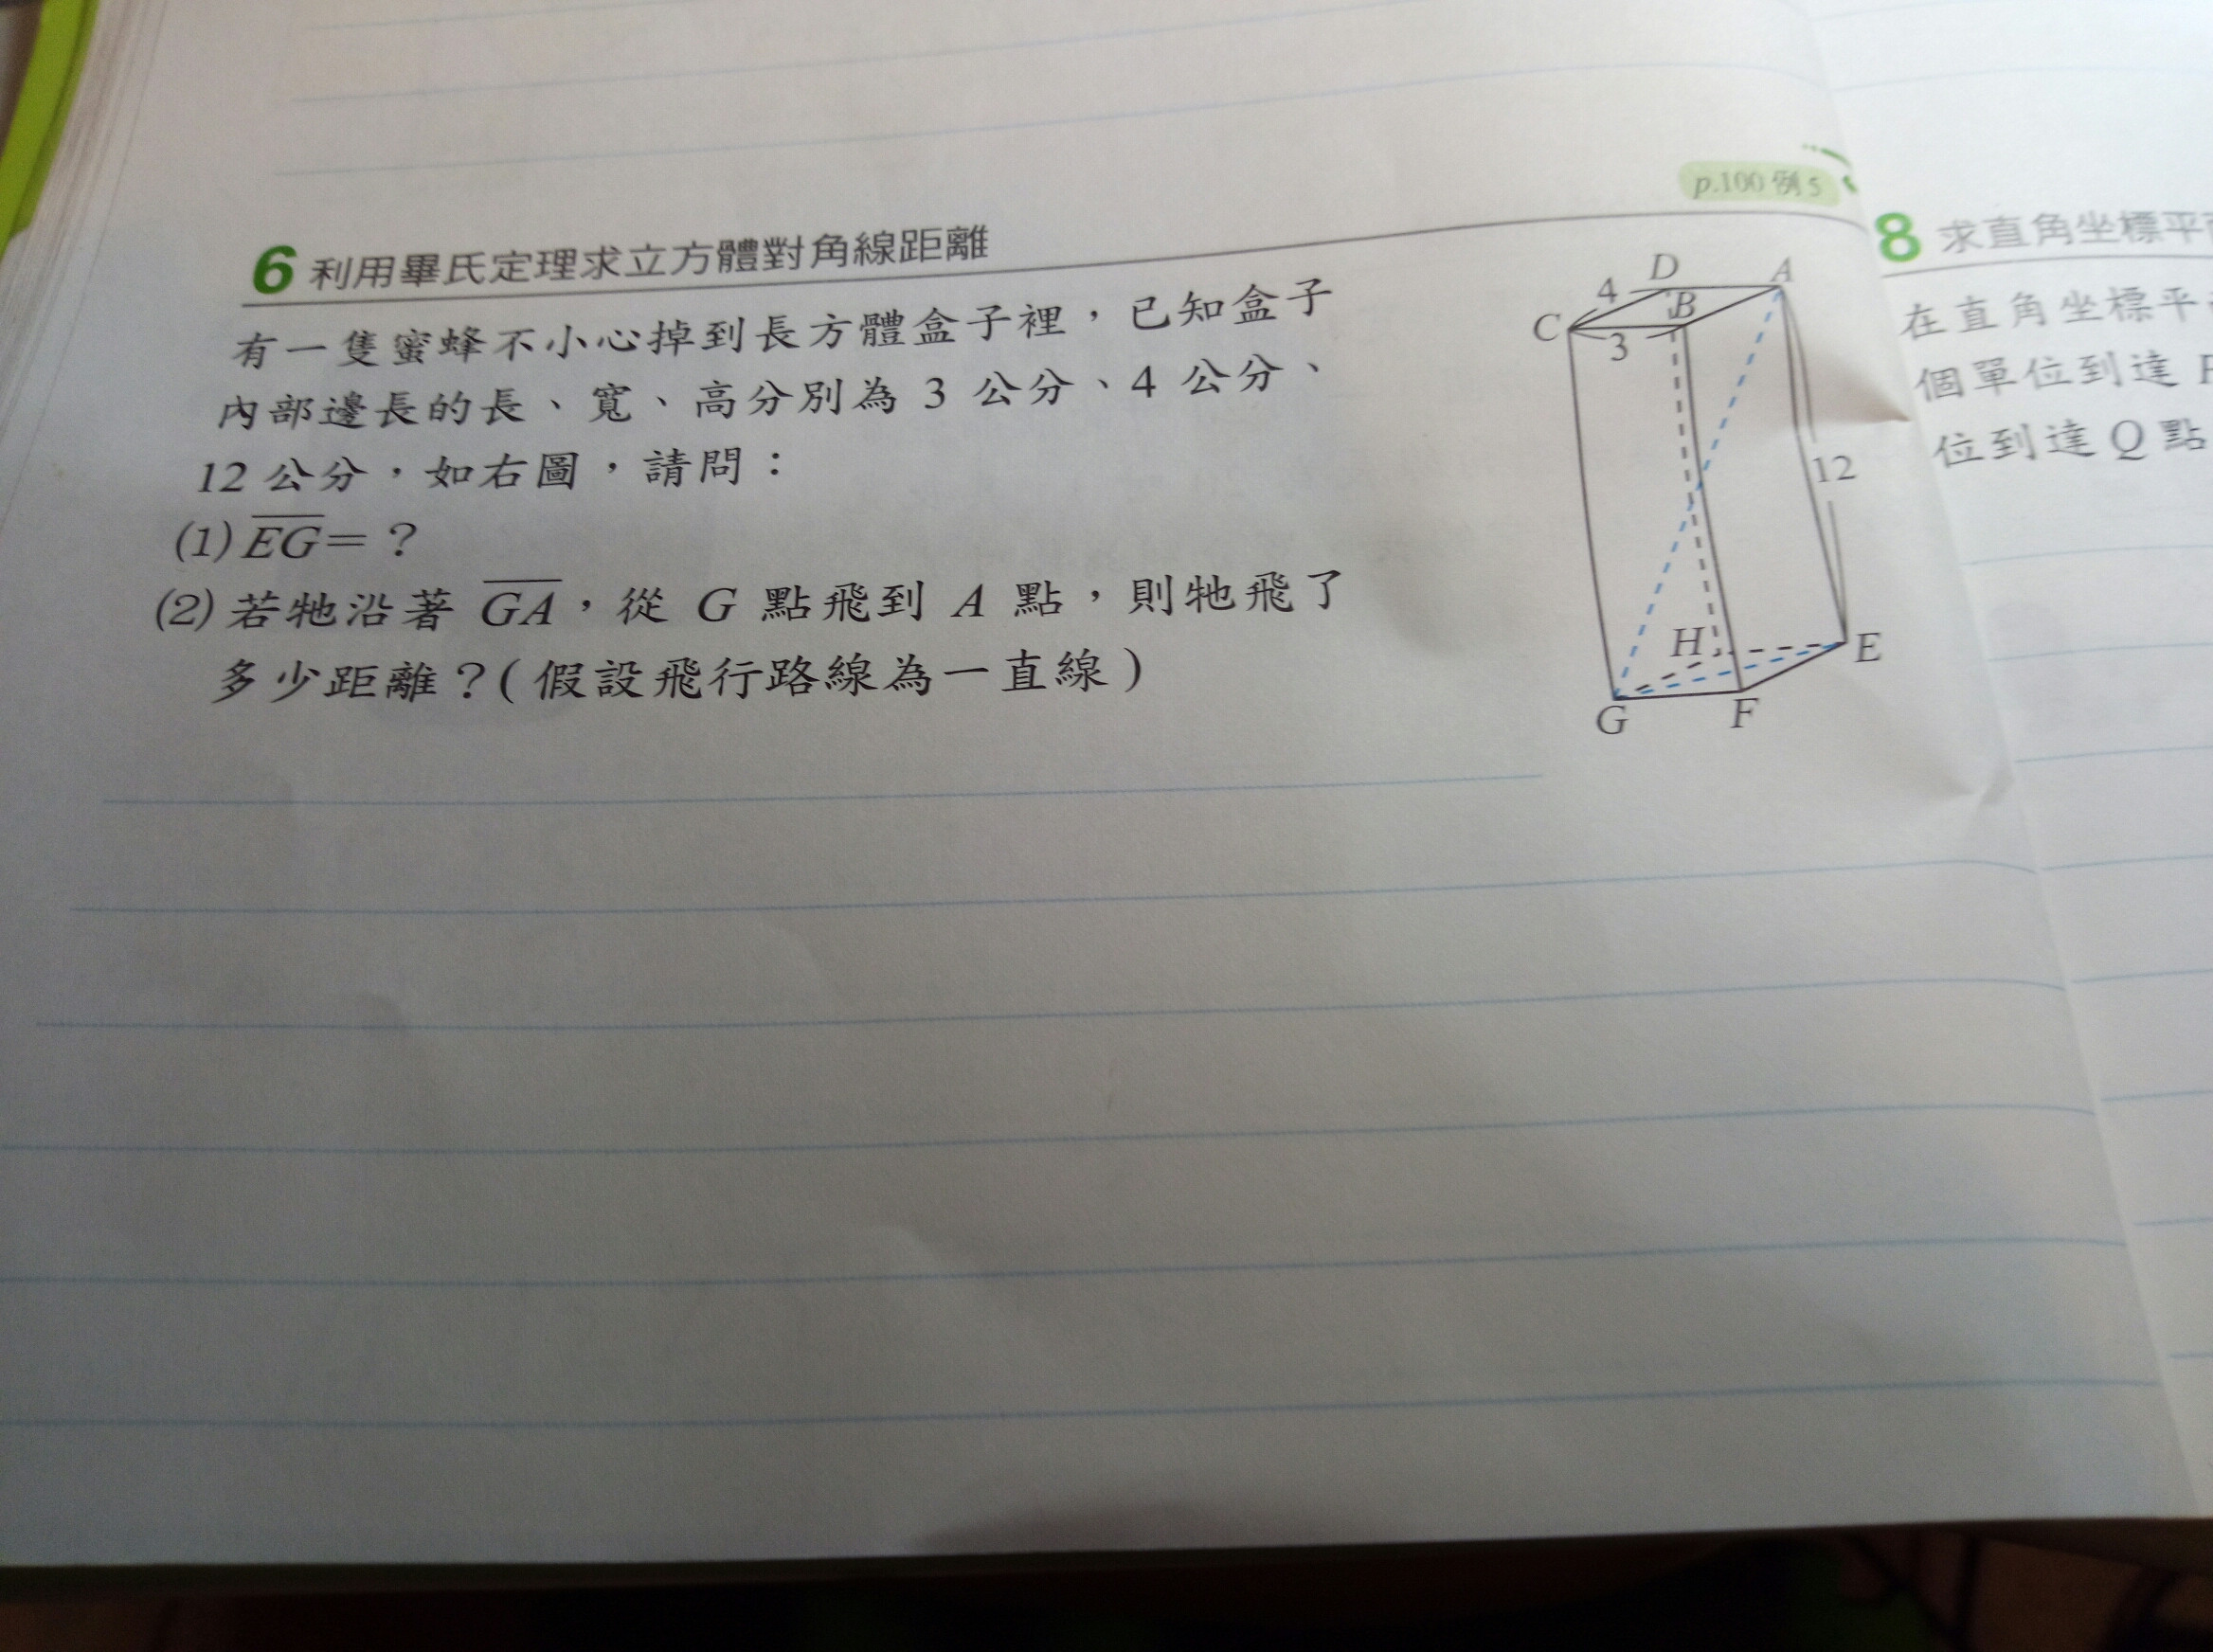 p.100 例 5
6 利用畢氏定理求立方體對角線距離
有一隻蜜蜂不小心掉到長方體盒子裡，已知盒子
內部邊長的長、寬、高分別為 3 公分、4 公分、
12 公分，如右圖，請問：
(1) EG＝？
(2) 若牠沿著 GA，從 G 點飛到 A 點，則牠飛了
多少距離？(假設飛行路線為一直線)
D A
4 B
C 3
12
H E
G F
8 求直角坐標平
在直角坐標平
個單位到達
位到達 Q 點